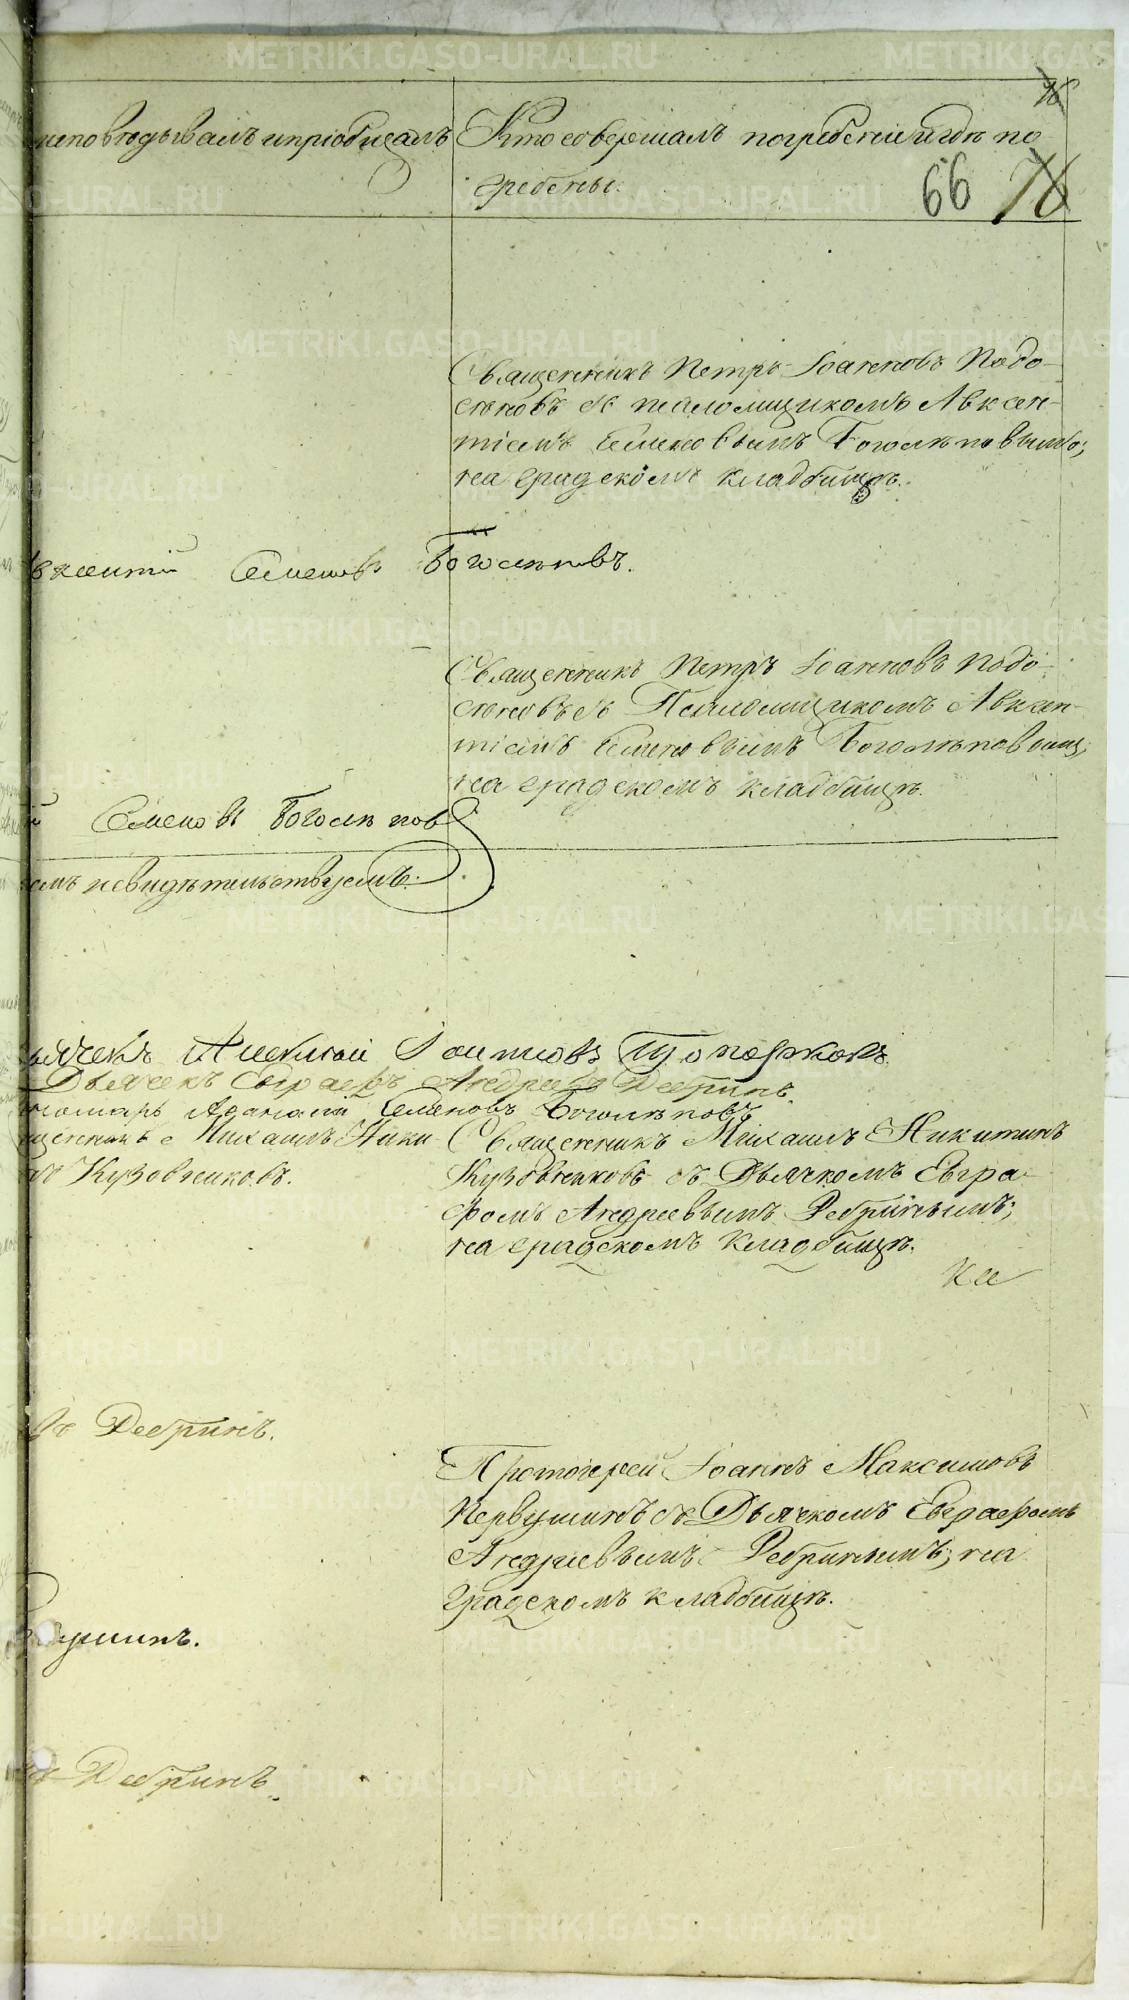 исповѣдывалъ и пріобщалъ
Кто совершалъ погребеніе и гдѣ по-
гребены.
76
66 76
Священникъ Петръ Іоанновъ Подо-
сеновъ съ псаломщикомъ Авксен-
тіемъ Семеновымъ Боголѣповымъ;
на градскомъ кладбищѣ.
вксентій Семеновъ Боголѣповъ.
Священникъ Петръ Іоанновъ Подо-
сеновъ съ Псаломщикомъ Авксен-
тіемъ Семеновымъ Боголѣповымъ;
на градскомъ кладбищѣ.
й Семеновъ Боголѣповъ
емъ свидѣтельствуемъ.
ьячекъ Алексѣй Топорковъ
Дьячекъ Евграфъ Андреевъ Ребринъ
номарь Семеновъ Боголѣповъ
щенникъ Михаилъ Ники-
нъ Кузовниковъ.
Священникъ Михаилъ Никитинъ
Кузовниковъ съ Дьячкомъ Евгра-
фомъ Андреевымъ Ребринымъ;
на градскомъ кладбищѣ.
въ Ребринъ.
Протоіерей Іоаннъ Максимовъ
Первушинъ съ Дьячкомъ Евграфомъ
Андреевымъ Ребринымъ; на
градскомъ кладбищѣ.
вушинъ.
въ Ребринъ.
METRIKI.GASO-URAL.RU